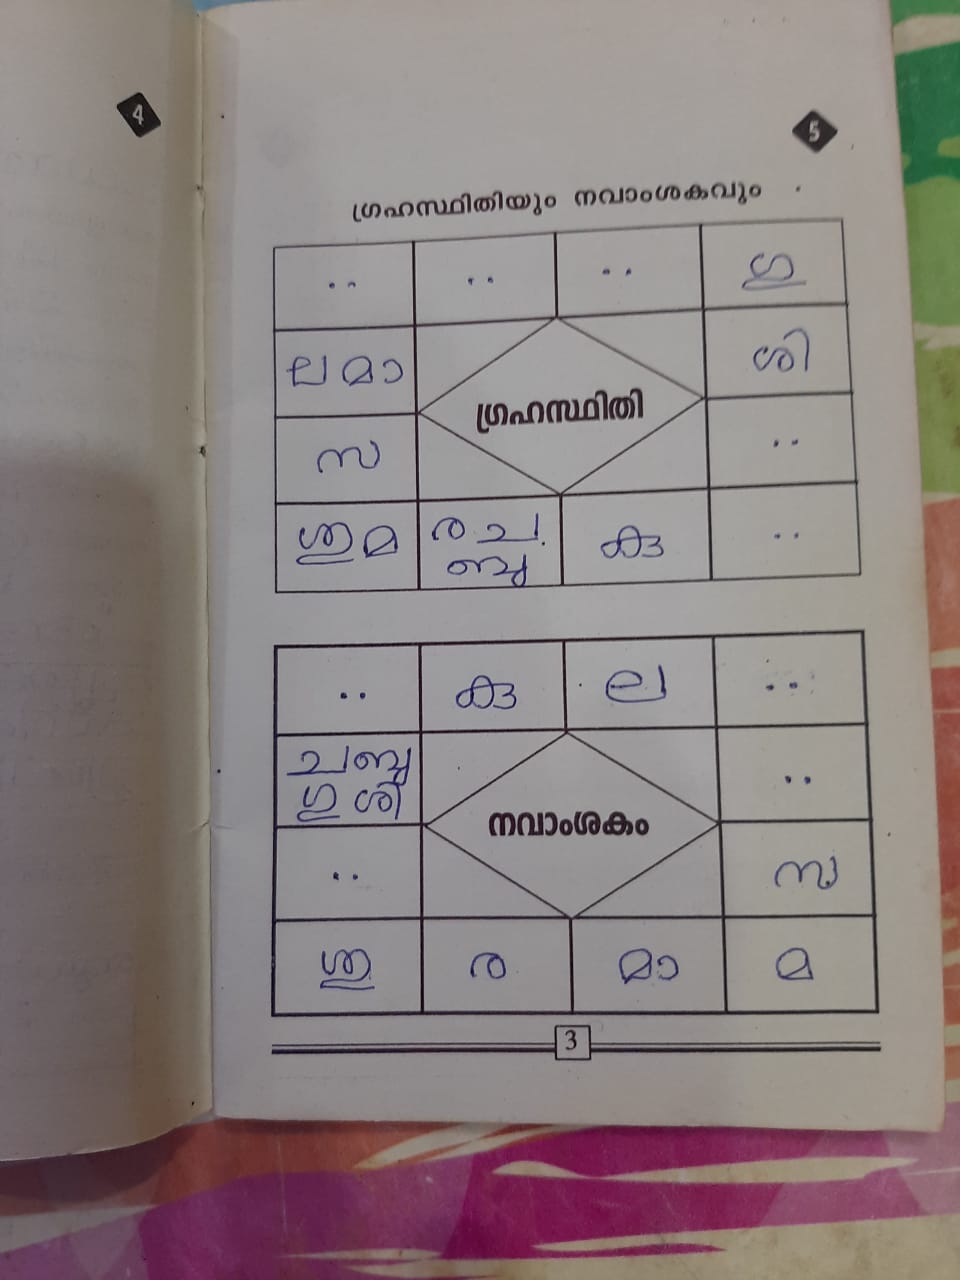 4
5
ഗ്രഹസ്ഥിതിയും നവാംശകവും
.. .. .. ഗു
ല മാ ശി
ഗ്രഹസ്ഥിതി
സ ..
ശു മ ര ച കു ..
ബു
.. കു ല ..
ച ബു ..
ഗു ശി
നവാംശകം
.. സ
ശു ര മാ മ
3